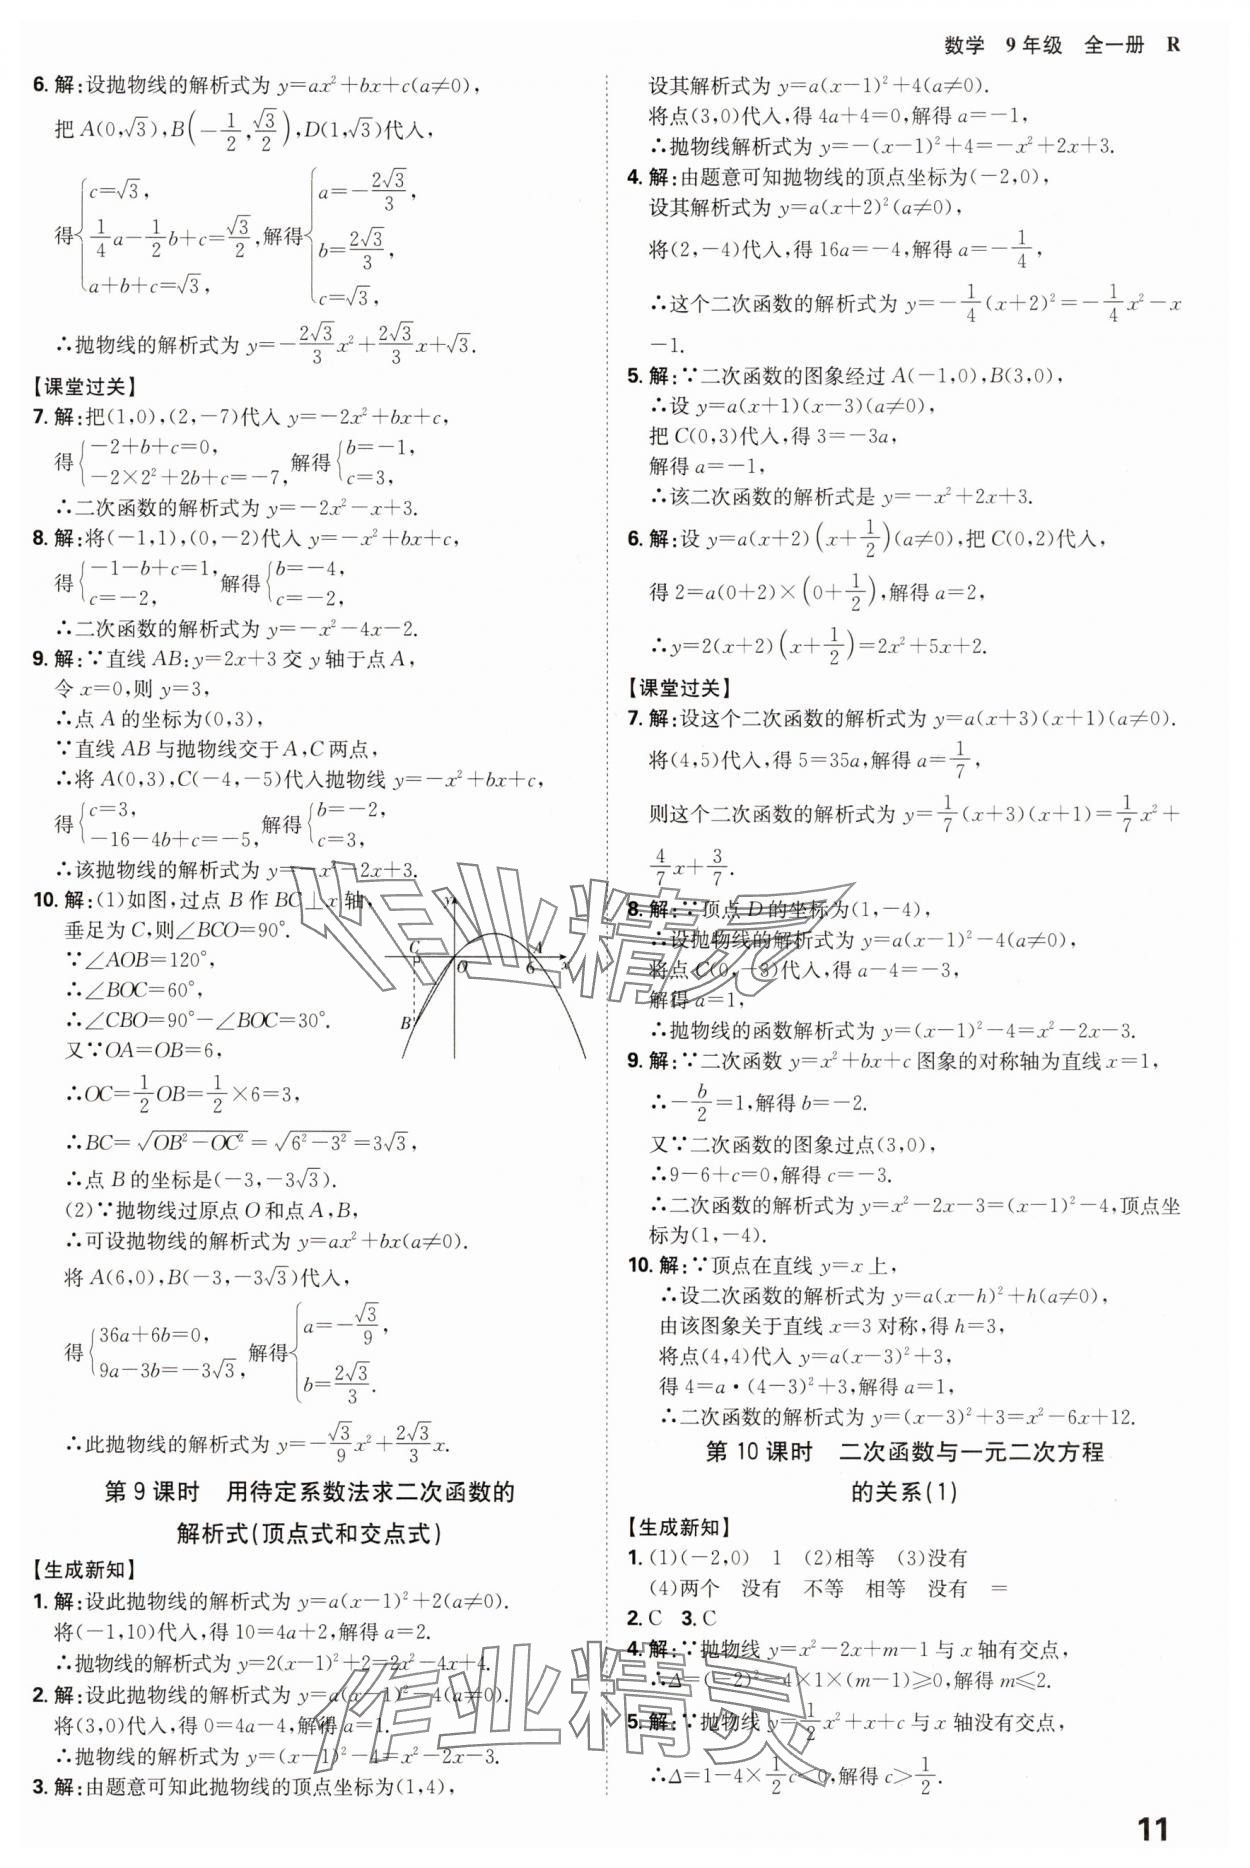 数学 9年级 全一册 R
6. 解:设抛物线的解析式为 y=ax²+bx+c(a≠0),
把 A(0,√3),B(-1/2,√3/2),D(1,√3)代入,
得{c=√3, 1/4a-1/2b+c=√3/2, a+b+c=√3, 解得{a=-2√3/3, b=2√3/3, c=√3,
∴抛物线的解析式为 y=-2√3/3x²+2√3/3x+√3.
【课堂过关】
7. 解:把(1,0),(2,-7)代入 y=-2x²+bx+c,
得{-2+b+c=0, -2×2²+2b+c=-7, 解得{b=-1, c=3,
∴二次函数的解析式为 y=-2x²-x+3.
8. 解:将(-1,1),(0,-2)代入 y=-x²+bx+c,
得{-1-b+c=1, c=-2, 解得{b=-4, c=-2,
∴二次函数的解析式为 y=-x²-4x-2.
9. 解:∵直线 AB:y=2x+3 交 y 轴于点 A,
令 x=0,则 y=3,
∴点 A 的坐标为(0,3),
∵直线 AB 与抛物线交于 A,C 两点,
∴将 A(0,3),C(-4,-5)代入抛物线 y=-x²+bx+c,
得{c=3, -16-4b+c=-5, 解得{b=-2, c=3,
∴该抛物线的解析式为 y=-x²-2x+3.
10. 解:(1)如图,过点 B 作 BC⊥x 轴,
垂足为 C,则∠BCO=90°.
∵∠AOB=120°,
∴∠BOC=60°,
∴∠CBO=90°-∠BOC=30°.
又∵OA=OB=6,
∴OC=1/2OB=1/2×6=3,
∴BC=√(OB²-OC²)=√(6²-3²)=3√3,
∴点 B 的坐标是(-3,-3√3).
(2)∵抛物线过原点 O 和点 A,B,
∴可设抛物线的解析式为 y=ax²+bx(a≠0).
将 A(6,0),B(-3,-3√3)代入,
得{36a+6b=0, 9a-3b=-3√3, 解得{a=-√3/9, b=2√3/3.
∴此抛物线的解析式为 y=-√3/9x²+2√3/3x.
y
C
A
O
6
x
B
第 9 课时 用待定系数法求二次函数的
解析式(顶点式和交点式)
【生成新知】
1. 解:设此抛物线的解析式为 y=a(x-1)²+2(a≠0).
将(-1,10)代入,得 10=4a+2,解得 a=2.
∴抛物线的解析式为 y=2(x-1)²+2=2x²-4x+4.
2. 解:设抛物线的解析式为 y=a(x-1)²-4(a≠0),
将(3,0)代入,得 0=4a-4,解得 a=1.
∴抛物线的解析式为 y=(x-1)²-4=x²-2x-3.
3. 解:由题意可知此抛物线的顶点坐标为(1,4),
设其解析式为 y=a(x-1)²+4(a≠0).
将点(3,0)代入,得 4a+4=0,解得 a=-1,
∴抛物线解析式为 y=-(x-1)²+4=-x²+2x+3.
4. 解:由题意可知抛物线的顶点坐标为(-2,0),
设其解析式为 y=a(x+2)²(a≠0),
将(2,-4)代入,得 16a=-4,解得 a=-1/4,
∴这个二次函数的解析式为 y=-1/4(x+2)²=-1/4x²-x
-1.
5. 解:∵二次函数的图象经过 A(-1,0),B(3,0),
∴设 y=a(x+1)(x-3)(a≠0),
把 C(0,3)代入,得 3=-3a,
解得 a=-1,
∴该二次函数的解析式是 y=-x²+2x+3.
6. 解:设 y=a(x+2)(x+1/2)(a≠0),把 C(0,2)代入,
得 2=a(0+2)×(0+1/2),解得 a=2,
∴y=2(x+2)(x+1/2)=2x²+5x+2.
【课堂过关】
7. 解:设这个二次函数的解析式为 y=a(x+3)(x+1)(a≠0).
将(4,5)代入,得 5=35a,解得 a=1/7,
则这个二次函数的解析式为 y=1/7(x+3)(x+1)=1/7x²+
4/7x+3/7.
8. 解:∵顶点 D 的坐标为(1,-4),
∴设抛物线的解析式为 y=a(x-1)²-4(a≠0),
将点 C(0,-3)代入,得 a-4=-3,
解得 a=1,
∴抛物线的函数解析式为 y=(x-1)²-4=x²-2x-3.
9. 解:∵二次函数 y=x²+bx+c 图象的对称轴为直线 x=1,
∴-b/2=1,解得 b=-2.
又∵二次函数的图象过点(3,0),
∴9-6+c=0,解得 c=-3.
∴二次函数的解析式为 y=x²-2x-3=(x-1)²-4,顶点坐
标为(1,-4).
10. 解:∵顶点在直线 y=x 上,
∴设二次函数的解析式为 y=a(x-h)²+h(a≠0),
由该图象关于直线 x=3 对称,得 h=3,
将点(4,4)代入 y=a(x-3)²+3,
得 4=a·(4-3)²+3,解得 a=1,
∴二次函数的解析式为 y=(x-3)²+3=x²-6x+12.
第 10 课时 二次函数与一元二次方程
的关系(1)
【生成新知】
1. (1)(-2,0) 1 (2)相等 (3)没有
(4)两个 没有 不等 相等 没有 =
2. C 3. C
4. 解:∵抛物线 y=x²-2x+m-1 与 x 轴有交点,
∴Δ=(-2)²-4×1×(m-1)≥0,解得 m≤2.
5. 解:∵抛物线 y=1/2x²+x+c 与 x 轴没有交点,
∴Δ=1-4×1/2c<0,解得 c>1/2.
11
作业精灵
作业精灵